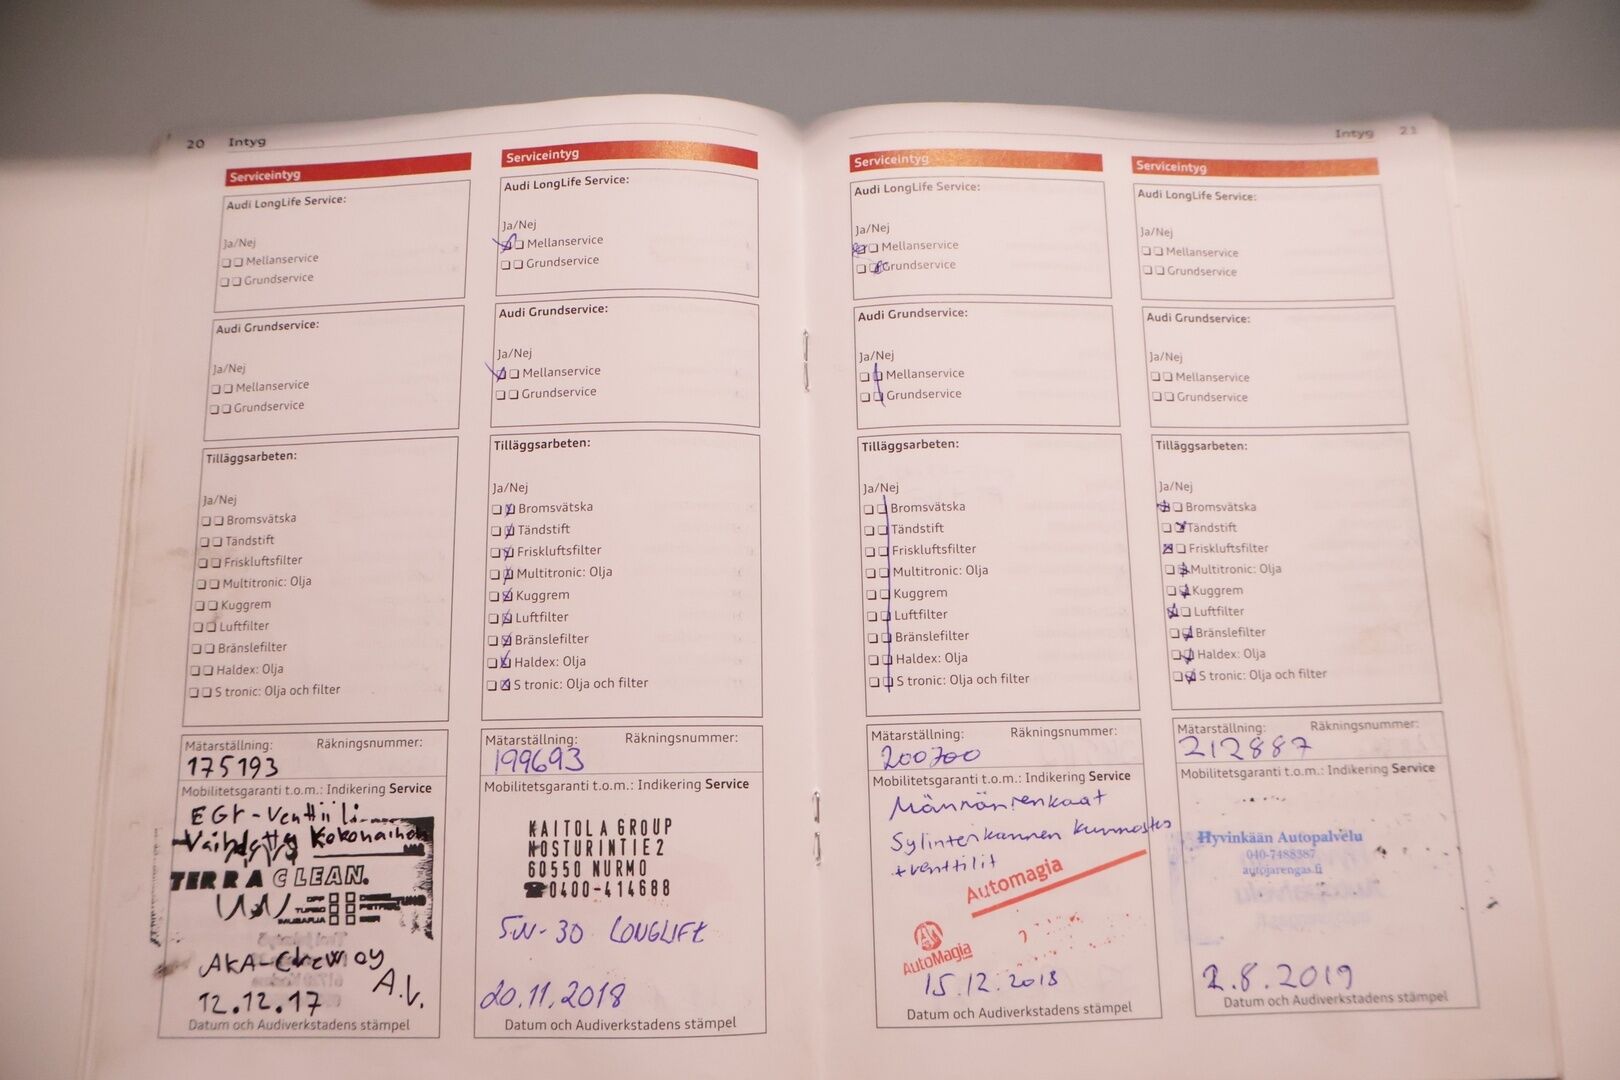 20 Intyg
Serviceintyg
Audi LongLife Service:
Ja/Nej
Mellanservice
Grundservice
Audi Grundservice:
Ja/Nej
Mellanservice
Grundservice
Tilläggsarbeten:
Ja/Nej
Bromsvätska
Tändstift
Friskluftsfilter
Multitronic: Olja
Kuggrem
Luftfilter
Bränslefilter
Haldex: Olja
S tronic: Olja och filter
Mätarställning: Räkningsnummer:
175193
Mobilitetsgaranti t.o.m.: Indikering Service
EGr-Venttiili
Vaihdettu Kokonaihon
TERRA CLEAN.
AKA-Chewoy
A.V.
12.12.17
Datum och Audiverkstadens stämpel
Serviceintyg
Audi LongLife Service:
Ja/Nej
Mellanservice
Grundservice
Audi Grundservice:
Ja/Nej
Mellanservice
Grundservice
Tilläggsarbeten:
Ja/Nej
Bromsvätska
Tändstift
Friskluftsfilter
Multitronic: Olja
Kuggrem
Luftfilter
Bränslefilter
Haldex: Olja
S tronic: Olja och filter
Mätarställning: Räkningsnummer:
199693
Mobilitetsgaranti t.o.m.: Indikering Service
KAITOLA GROUP
NOSTURINTIE 2
60550 NURMO
☎0400-414688
5W-30 LONGLIFE
20.11.2018
Datum och Audiverkstadens stämpel
Intyg 21
Serviceintyg
Audi LongLife Service:
Ja/Nej
Mellanservice
Grundservice
Audi Grundservice:
Ja/Nej
Mellanservice
Grundservice
Tilläggsarbeten:
Ja/Nej
Bromsvätska
Tändstift
Friskluftsfilter
Multitronic: Olja
Kuggrem
Luftfilter
Bränslefilter
Haldex: Olja
S tronic: Olja och filter
Mätarställning: Räkningsnummer:
200700
Mobilitetsgaranti t.o.m.: Indikering Service
Männänrenkaat
Sylinterikannen kunnostus
+venttilit
Automagia
AutoMagia
15.12.2018
Datum och Audiverkstadens stämpel
Serviceintyg
Audi LongLife Service:
Ja/Nej
Mellanservice
Grundservice
Audi Grundservice:
Ja/Nej
Mellanservice
Grundservice
Tilläggsarbeten:
Ja/Nej
Bromsvätska
Tändstift
Friskluftsfilter
Multitronic: Olja
Kuggrem
Luftfilter
Bränslefilter
Haldex: Olja
S tronic: Olja och filter
Mätarställning: Räkningsnummer:
212887
Mobilitetsgaranti t.o.m.: Indikering Service
Hyvinkään Autopalvelu
040-7488387
autojarengas.fi
2.8.2019
Datum och Audiverkstadens stämpel